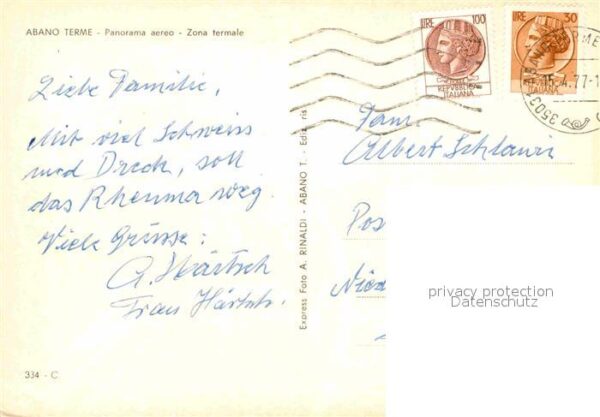 ABANO TERME - Panorama aereo - Zona termale
Liebe Familie,
Mit viel Schweiss
und Dreck, soll
das Rheuma weg.
Viele Grüsse:
A. Härtsch
Frau Härtsch.
334 - C
Express Foto A. RINALDI - ABANO T. - Ediz. ris
LIRE 100
REPVBBLICA
ITALIANA
LIRE 30
ITALIANA
35031
15.4.77-1
Fam.
Albert Schlauri
Pos
Nied
privacy protection
Datenschutz